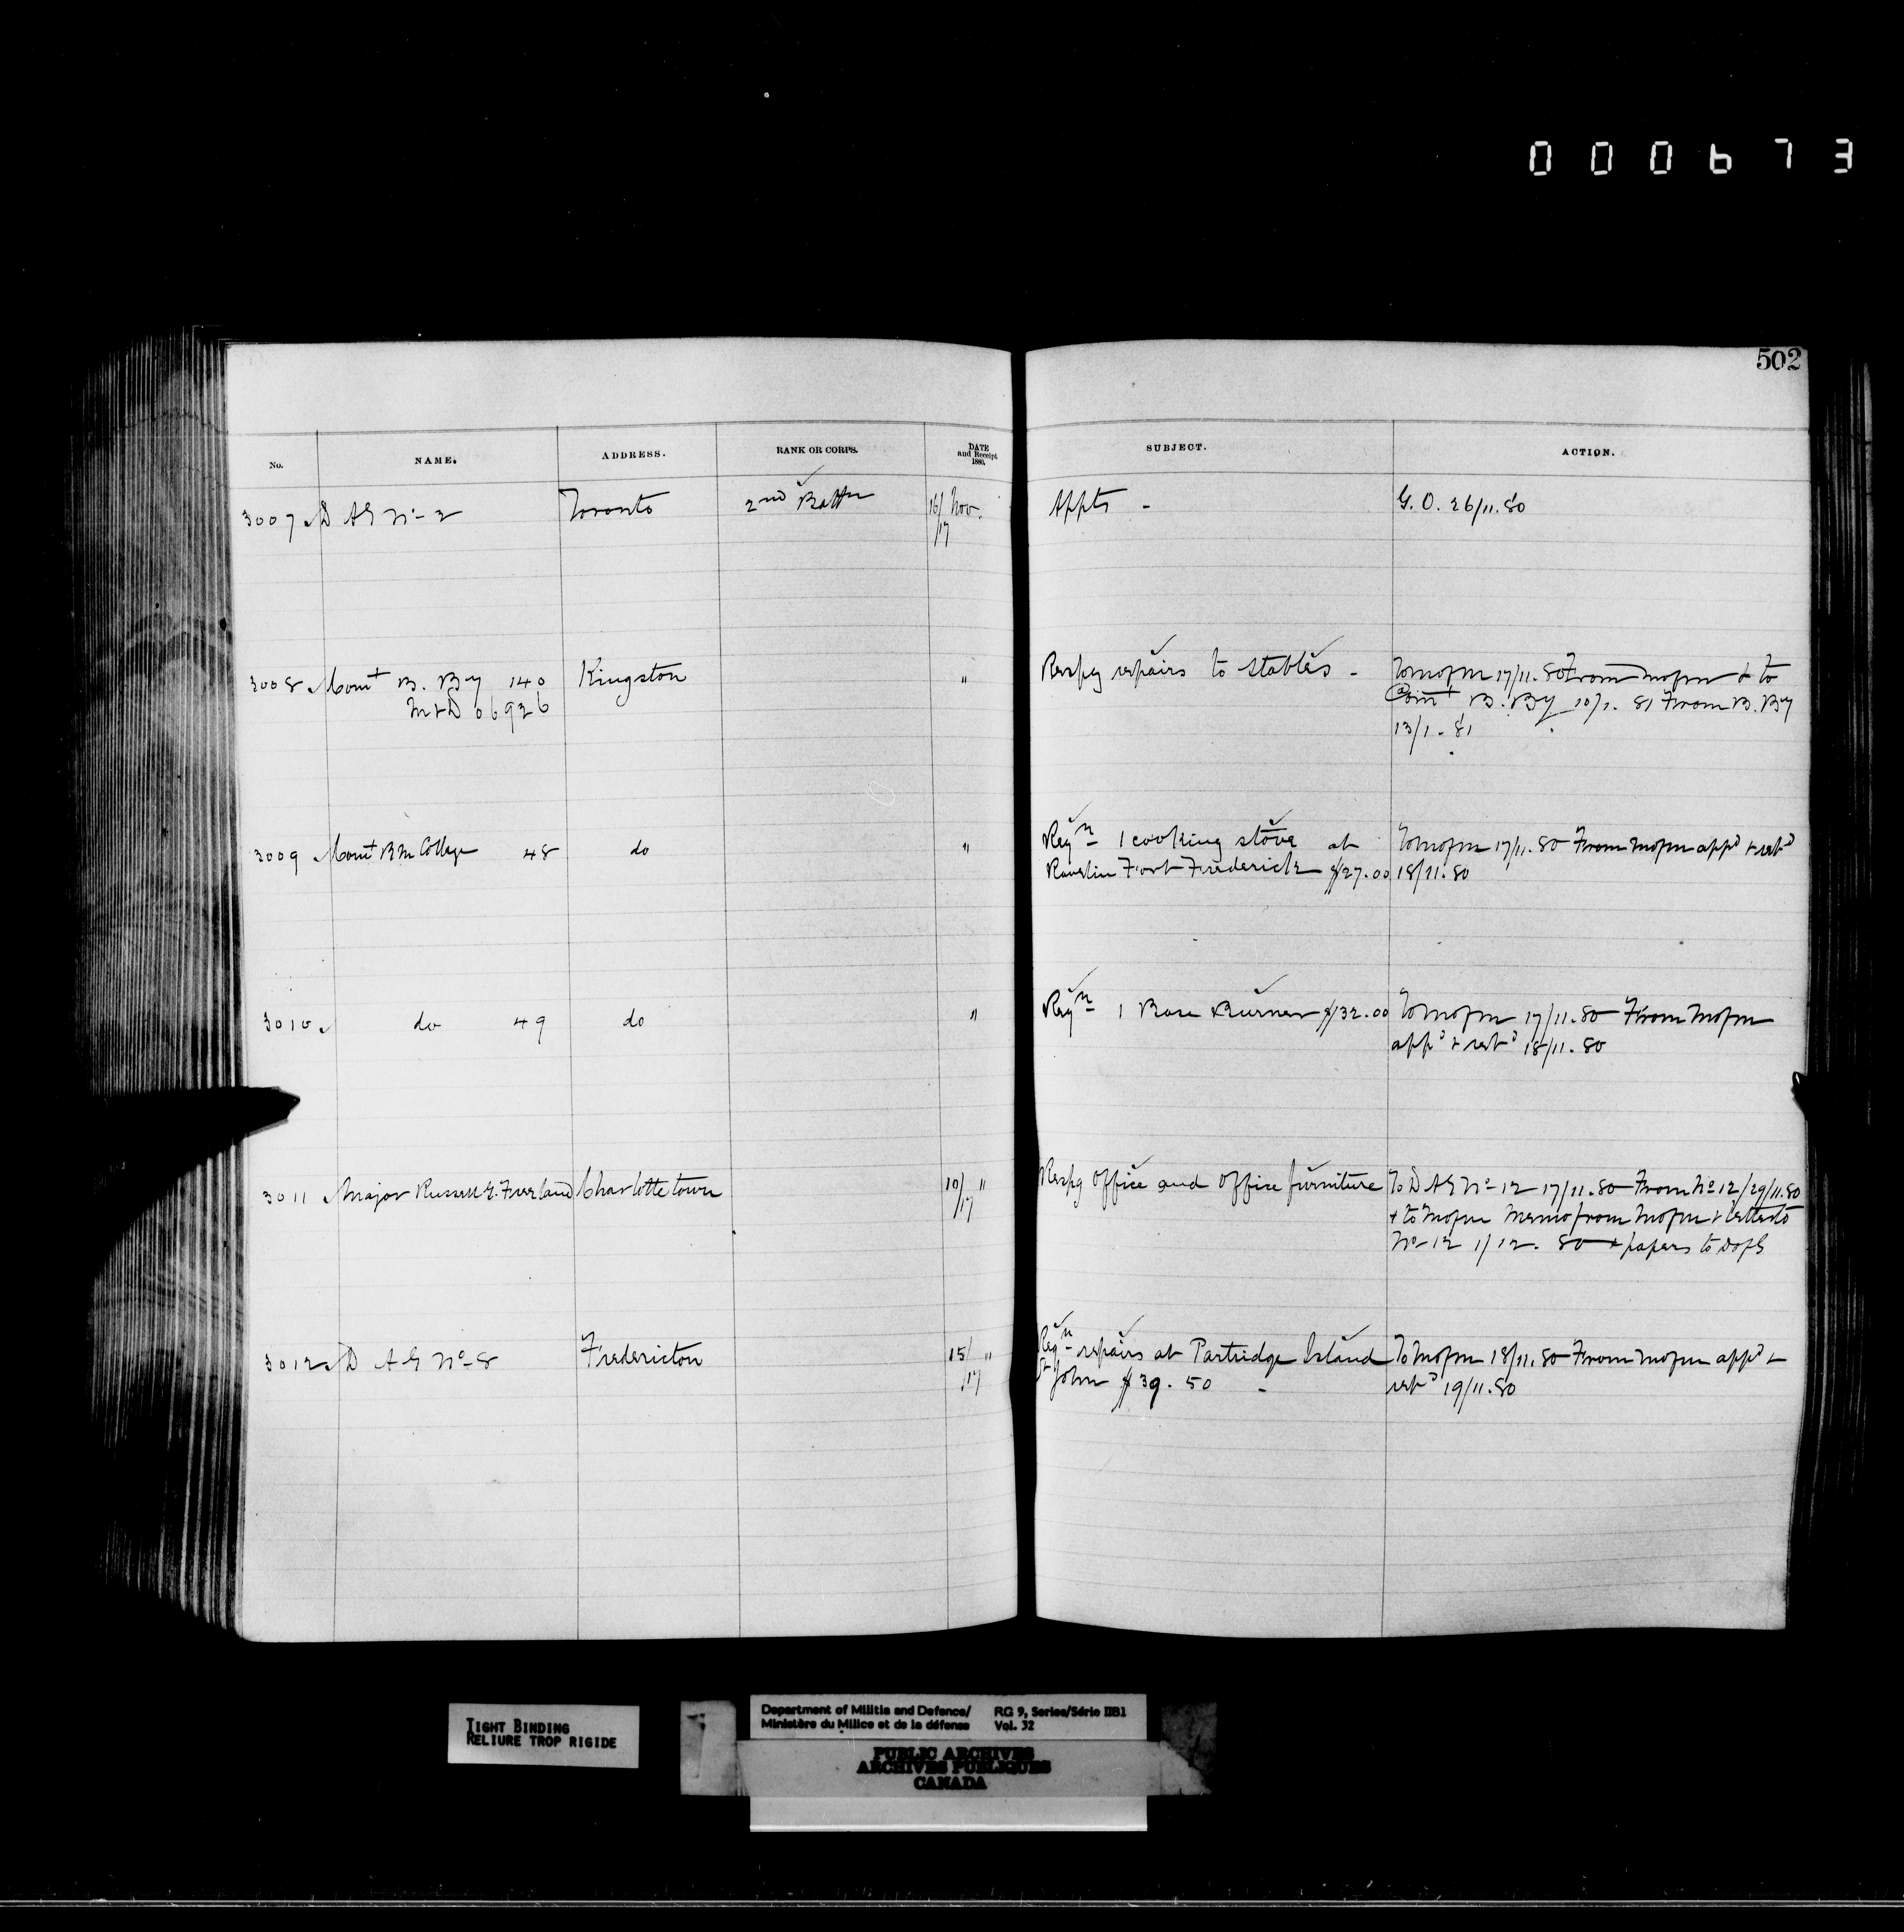 000673
502
No. NAME. ADDRESS. RANK OR CORPS. DATE and Receipt 1880. SUBJECT. ACTION.
3007 D A G No 2 Toronto 2nd Battn 16/17 Nov. Appts - G. O. 26/11.80
3008 Comt B. By 140 Kingston " Respg repairs to stables - To Mofm 17/11.80 From Mofm & to
M&D 06926 Comt B. By 10/1. 81 From B. By
13/1. 81
3009 Comt R M College 48 do " Reqn 1 cooking stove at To Mofm 17/11.80 From Mofm appd & retd
Ravelin Fort Frederick $27.00 18/11.80
3010 do 49 do " Reqn 1 Base Burner $32.00 To Mofm 17/11.80 From Mofm
appd & retd 18/11.80
3011 Major Russell Charlottetown 10/17 " Respg Office and Office furniture To D A G No 12 17/11.80 From No 12/29/11.80
& to Mofm Memo from Mofm & letter to
No 12 1/12. 80 & papers to D of S
3012 D A G No 8 Fredericton 15/17 " Reqn repairs at Partridge Island To Mofm 18/11.80 From Mofm appd &
St John $39.50 - retd 19/11.80
TIGHT BINDING
RELIURE TROP RIGIDE
Department of Militia and Defence/ RG 9, Series/Série IIB1
Ministère du Milice et de la défense Vol. 32
PUBLIC ARCHIVES
ARCHIVES PUBLIQUES
CANADA